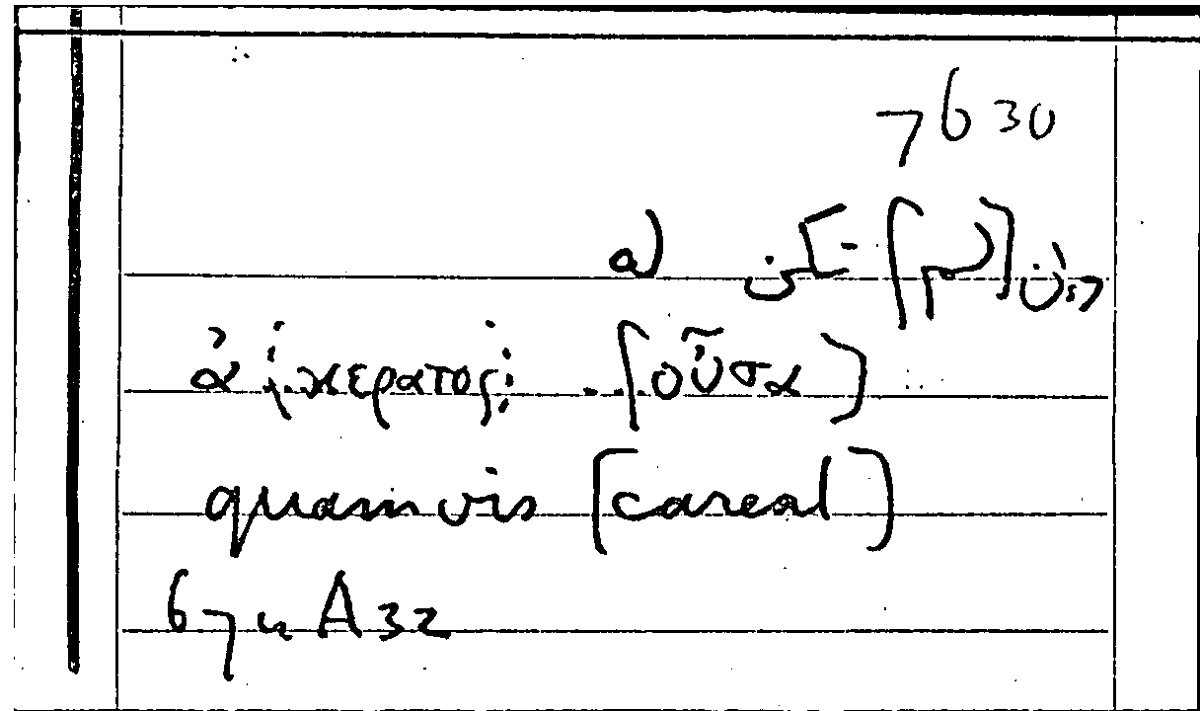 7630
a)
ἀ{κερατος} .. [οὖσα]
quamvis [careat]
674 A32